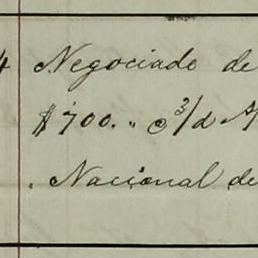 4 Negociado de
$700. " c3/d
. Nacional de